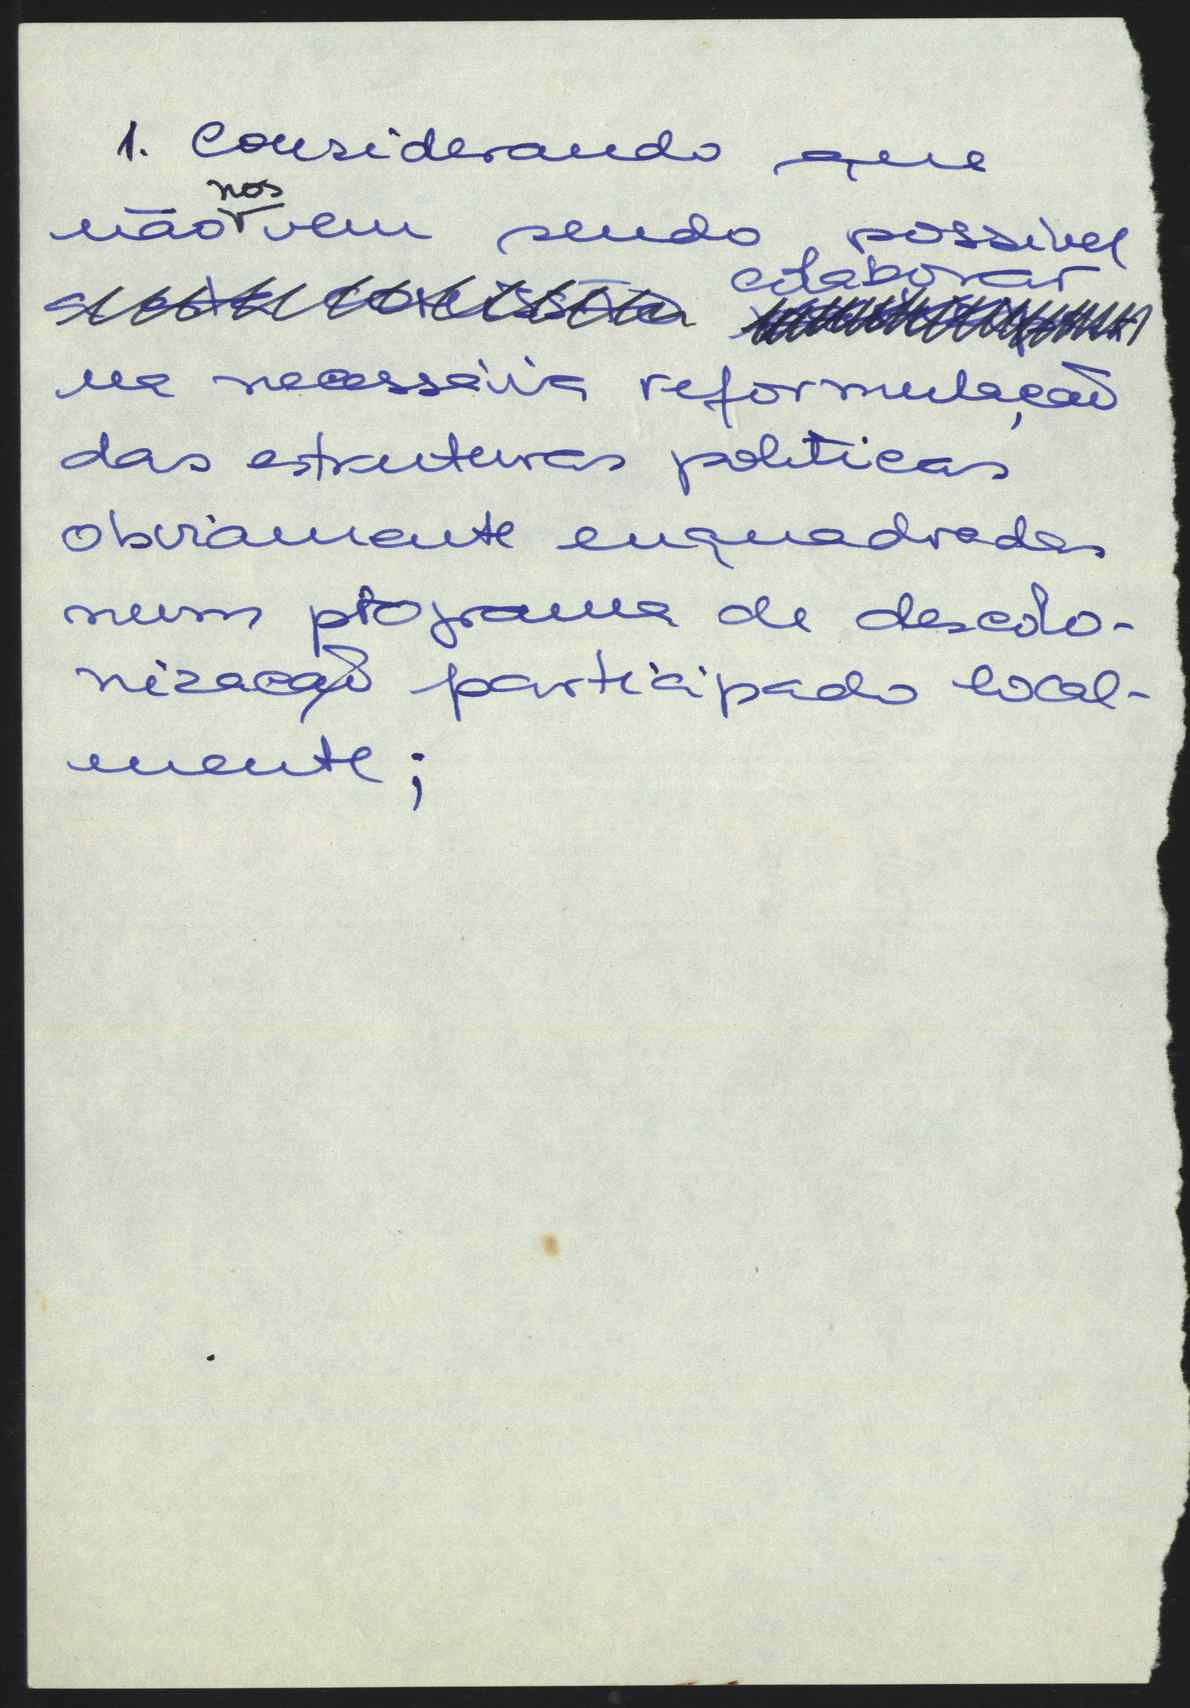 1. Considerando que
nos
não vem sendo possível
a esta comissão colaborar
na necessária reformulação
das estruturas políticas
obviamente enquadradas
num programa de descolo-
nização participado local-
mente;